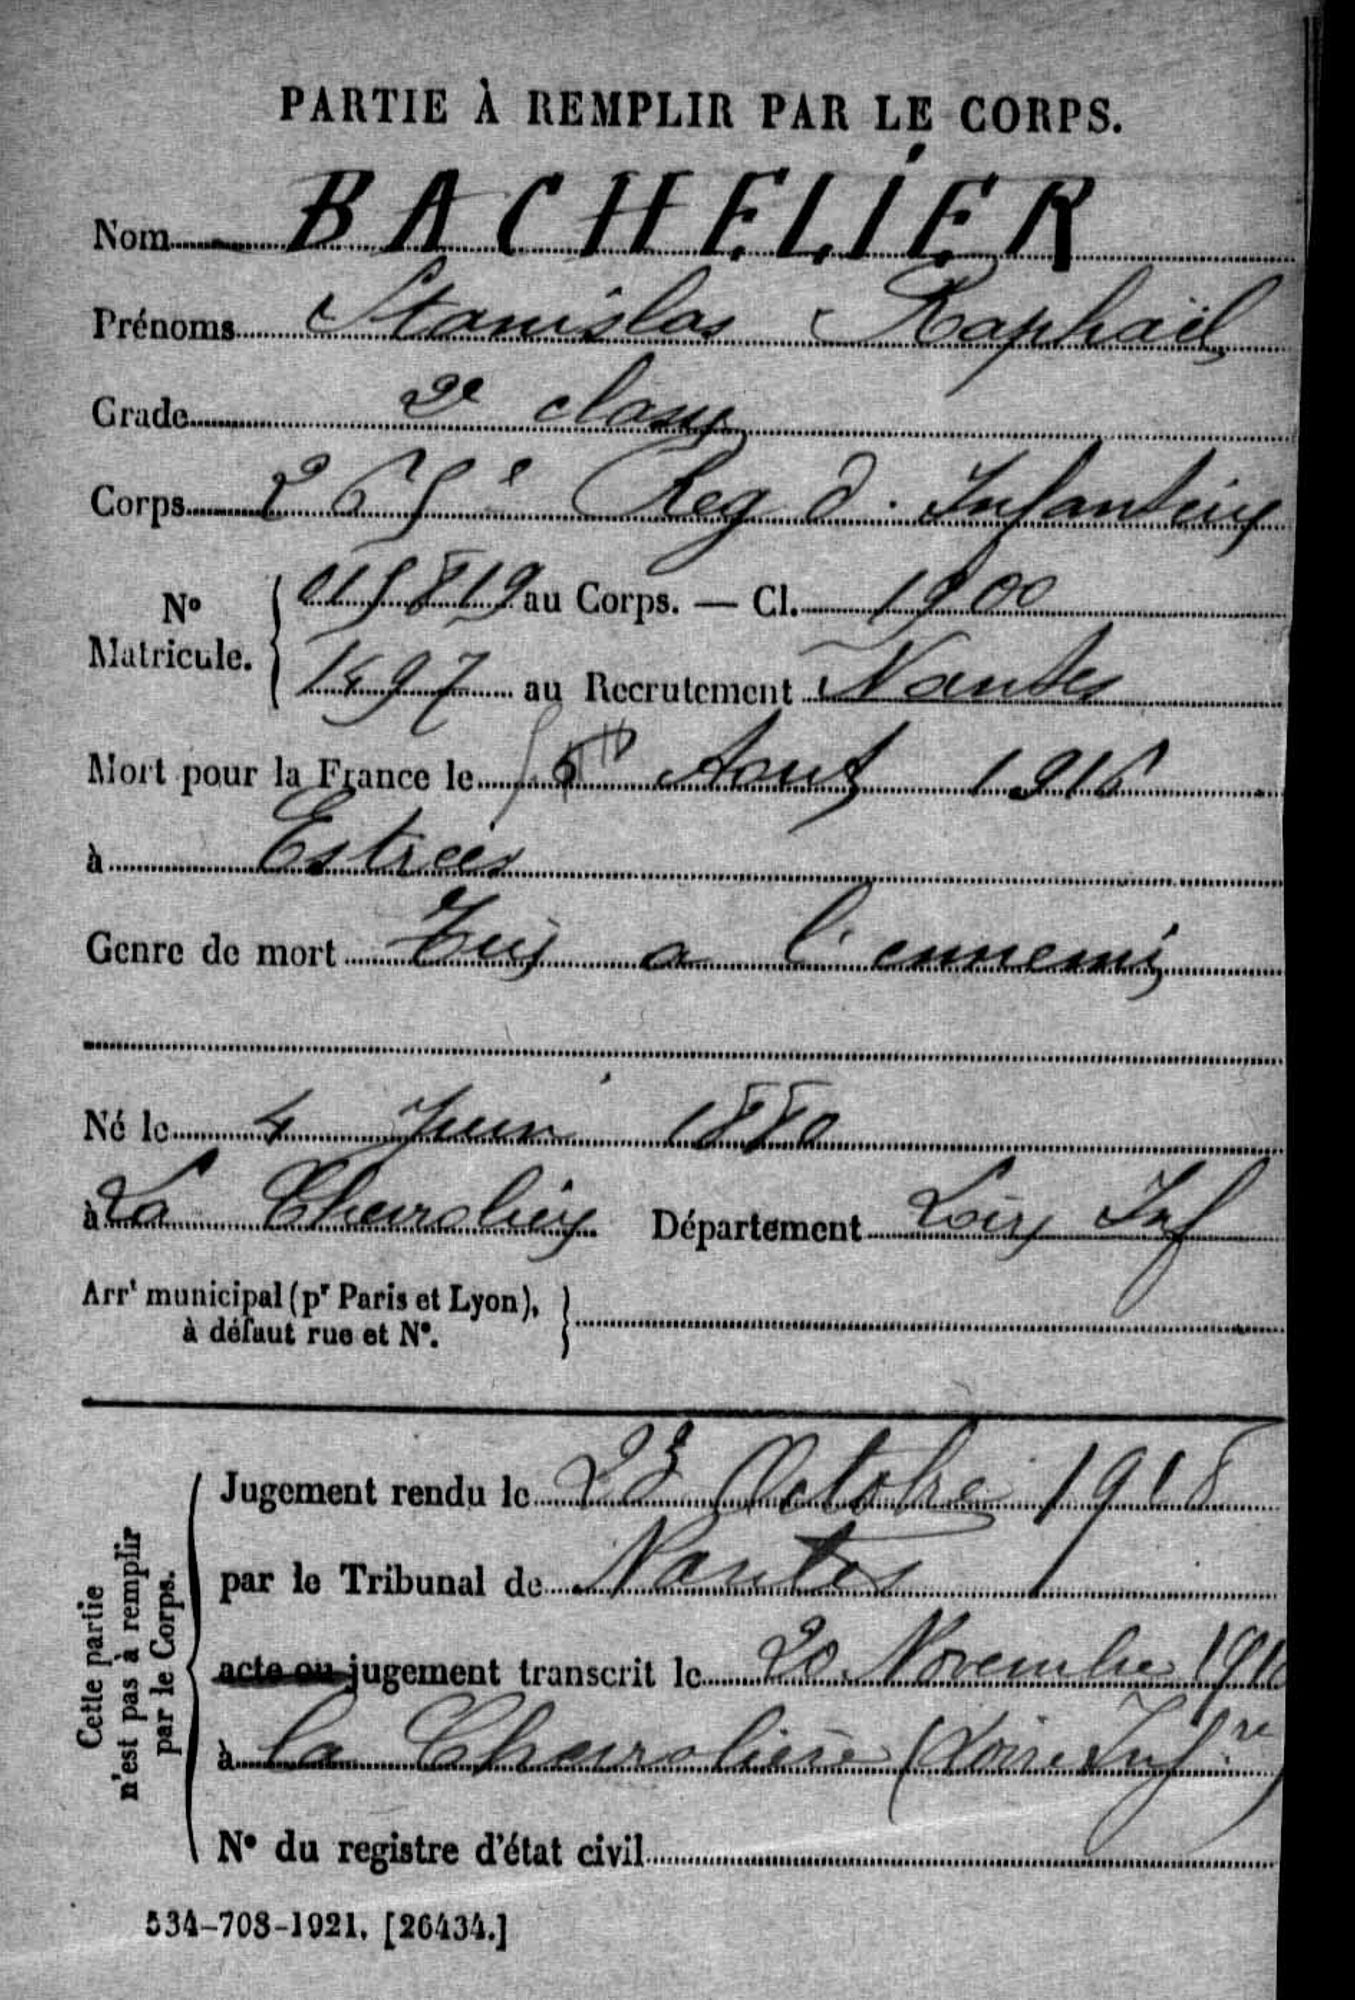 PARTIE À REMPLIR PAR LE CORPS.
Nom BACHELIER
Prénoms Stanislas Raphaël
Grade 2e classe
Corps 265e Reg d. Infanterie
No Matricule. { 015819 au Corps. — Cl. 1900
1497 au Recrutement Nantes
Mort pour la France le 5 Aout 1916
à Estrées
Genre de mort Tué a l'ennemi
Né le 4 Juin 1880
à La Chevrolière Département Loire Inf
Arrt municipal (pr Paris et Lyon), à défaut rue et No. }
Cette partie n'est pas à remplir par le Corps.
Jugement rendu le 23 Octobre 1918
par le Tribunal de Nantes
acte ou jugement transcrit le 20 Novembre 1918
à la Chevrolière (Loire Infre)
No du registre d'état civil
534-708-1921. [26434.]